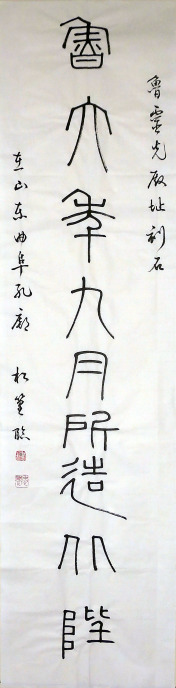 魯靈光殿址刻石
魯六年九月所造北陛
在山東曲阜孔廟
臨